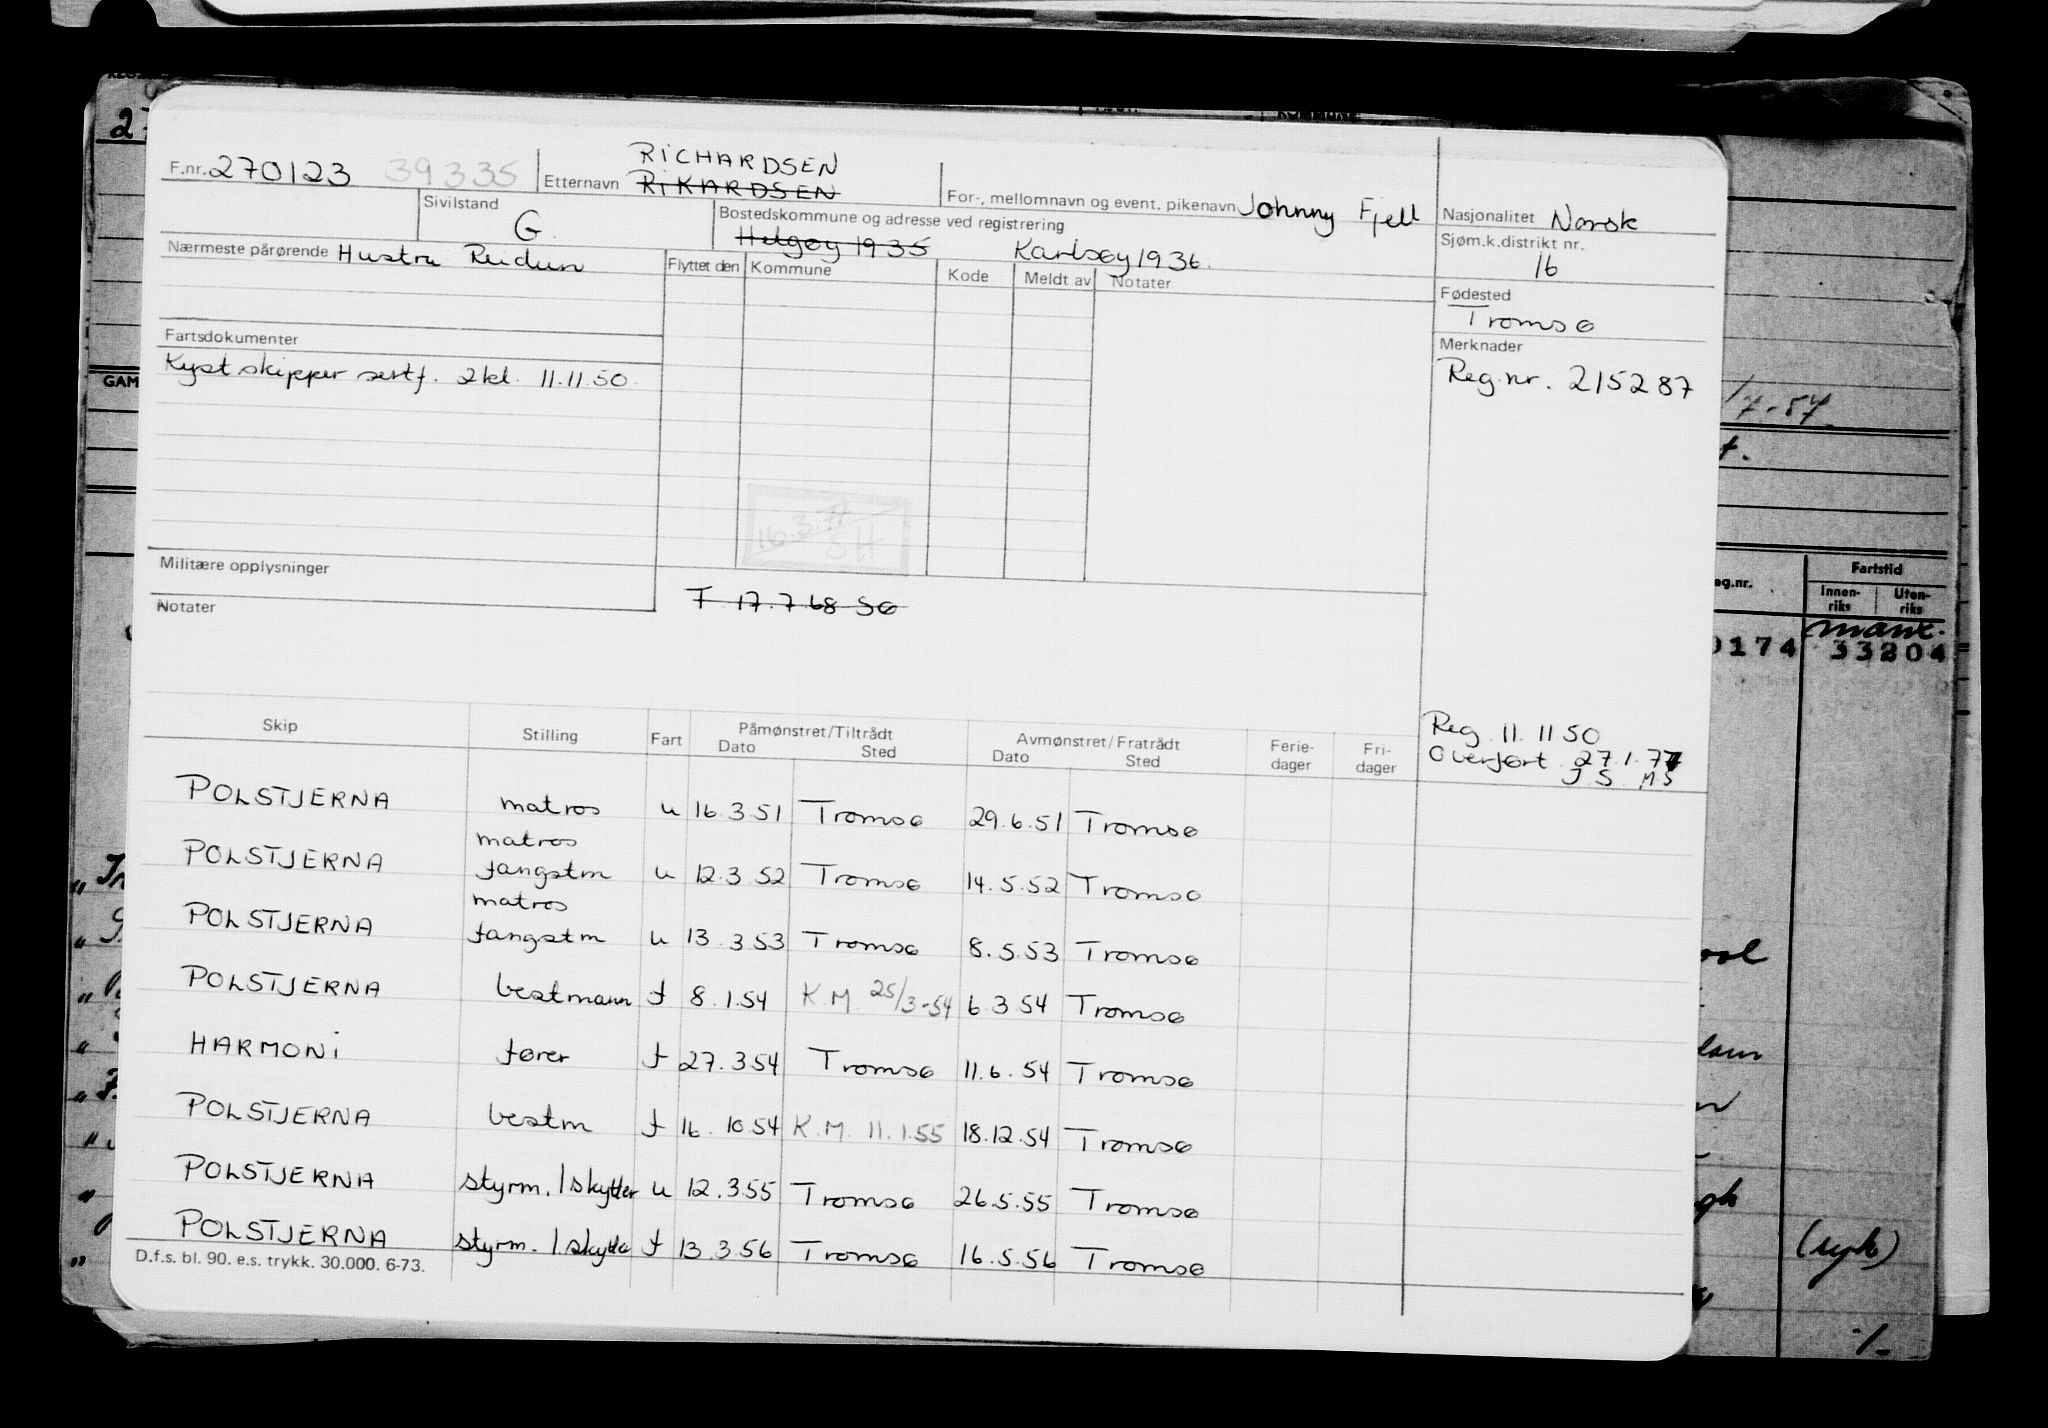 RICHARDSEN
F.nr. 270123 39335 Etternavn RIKARDSEN For-, mellomnavn og event. pikenavn Johnny Fjell Nasjonalitet Norsk
Sivilstand G. Bostedskommune og adresse ved registrering Sjøm.k.distrikt nr.
Helgøy 1935 Karlsøy 1936. 16
Nærmeste pårørende Hustru Reidun Flyttet den Kommune Kode Meldt av Notater
Fødested
Tromsø
Fartsdokumenter Merknader
Kystskipper sertf. 2kl. 11.11.50. Reg.nr. 215287
GAM
16.3.77
SH
Militære opplysninger
Notater F 17.7.68 Sø
Skip Stilling Fart Påmønstret/Tiltrådt Avmønstret/Fratrådt Ferie- Fri-
Dato Sted Dato Sted dager dager
Reg. 11.11 50
Overført 27.1.77
J.S. M.S
POLSTJERNA matros u 16.3.51 Tromsø 29.6.51 Tromsø
matros
POLSTJERNA fangstm u 12.3.52 Tromsø 14.5.52 Tromsø
matros
POLSTJERNA fangstm u 13.3.53 Tromsø 8.5.53 Tromsø
POLSTJERNA bestmann f 8.1.54 K.M. 25/3-54 6.3.54 Tromsø
HARMONI fører f 27.3.54 Tromsø 11.6.54 Tromsø
POLSTJERNA bestm f 16.10.54 K.M. 11.1.55 18.12.54 Tromsø
POLSTJERNA styrm./skytter u 12.3.55 Tromsø 26.5.55 Tromsø
POLSTJERNA styrm./skytte f 13.3.56 Tromsø 16.5.56 Tromsø
D.f.s. bl. 90. e.s. trykk. 30.000. 6-73.
/7-57.
eg.nr. Fartstid
Innen- Uten-
riks riks
0174 33204